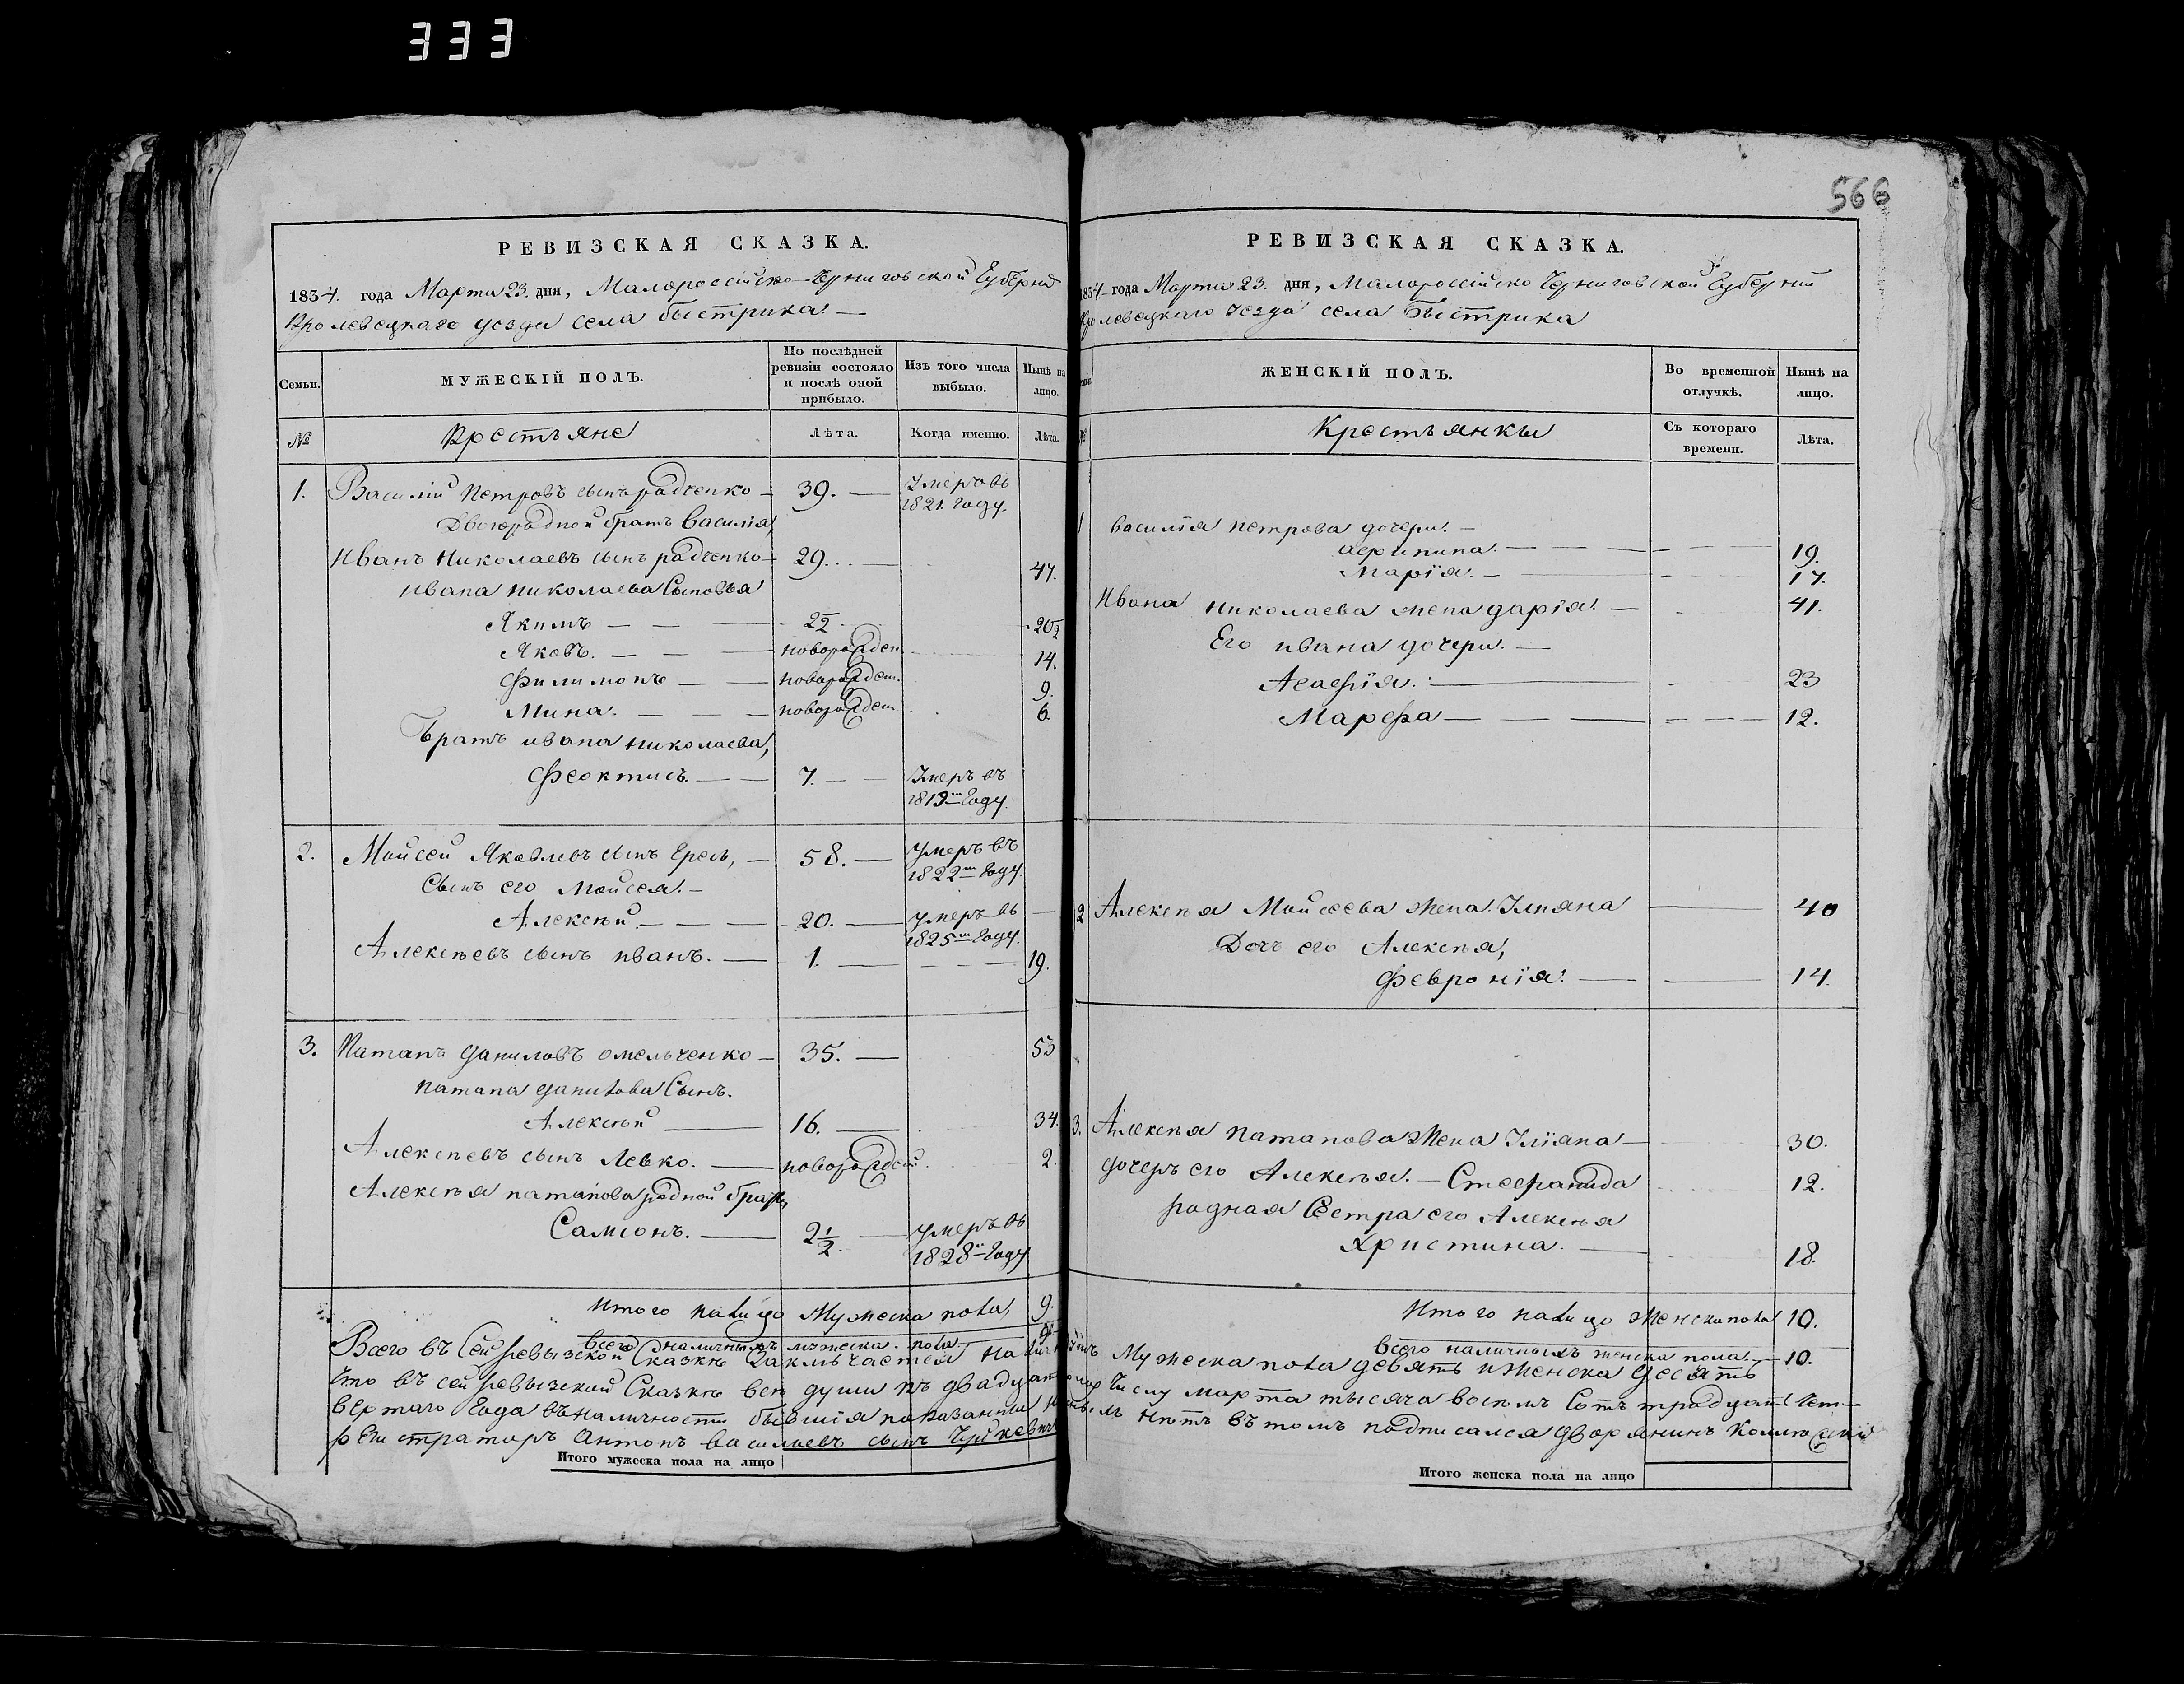 333
566
РЕВИЗСКАЯ СКАЗКА.
1834. года Марта 23. дня, Малороссійско-Черниговской Губерніи
Кролевецкаго уезда села Быстрика. —
Семьи. МУЖЕСКІЙ ПОЛЪ. По послѣдней ревизіи состояло и послѣ оной прибыло. Изъ того числа выбыло. Нынѣ на лицо.
№ Крестьяне Лѣта. Когда именно. Лѣта.
1. Василій Петровъ сынъ радченко — 39. — Умеръ въ 1821. Году.
Двоюрадной братъ Василія,
Иванъ Николаевъ сынъ радченко — 29. — 47.
Ивана Николаева Сыновья
Якимъ — — — 2 1/2 20 1/2
Яковъ. — — — новорожден. 14.
Филимонъ — — новорожден. 9.
Мина. — — — новорожден. 6.
Братъ ивана Николаева,
Феоктисъ. — — 7. — Умеръ въ 1819м Году.
2. Моисей Яковлевъ сынъ — 58. — Умеръ въ 1822м Году.
Сынъ его Моисея. —
Алексѣй. — — — 20. — Умеръ въ 1825м Году.
Алексѣевъ сынъ иванъ. — 1. — — 19.
3. Патапъ Даниловъ омельченко — 35. — 53
Патапа Данилова Сынъ.
Алексѣй — 16. — 34.
Алексѣевъ сынъ Левко. — новорожден. 2.
Алексѣя патапова родной братъ,
Самсонъ. — 2 1/2. — Умеръ въ 1828м Году
Итого налицо Мужеска пола, 9.
всего наличныхъ мужеска пола. — 9.
РЕВИЗСКАЯ СКАЗКА.
1834 года Марта 23. дня, Малороссійско Черниговской Губерніи
Кролевецкаго уезда села Быстрика
ЖЕНСКІЙ ПОЛЪ. Во временной отлучкѣ. Нынѣ на лицо.
№ Крестьянкы Съ котораго времени. Лѣта.
1 Василія петрова дочери. —
Агрипина. — — — 19.
Марія. — 17.
Ивана Николаева жена дарія. — 41.
Его ивана дочери. —
Агафія. — 23
Марфа — — — 12.
2 Алексѣя Моисеева жена. Уліяна — 40
Дочь его Алексѣя,
Февронія. — — 14.
3. Алексѣя патапова Жена Уліяна — 30.
дочерь его Алексѣя. — Стефанида 12.
родная Сестра его Алексѣя
Христина. — 18.
Итого налицо Женска пола 10.
Всего наличныхъ женска пола. — 10.
Всего въ Сей ревызской Сказкѣ Заключается наличныхъ Мужеска пола девять и Женска десять
Что въ сей ревызской Сказкѣ все души къ двадцать Числу марта тысяча восемъ Сотъ тридцать Чет-
вертаго Года въ наличности бывшія показанны нѣтъ въ томъ подписался дворянинъ Коллежскій
регистраторъ Антонъ Василіевъ сынъ
Итого мужеска пола на лицо
Итого женска пола на лицо